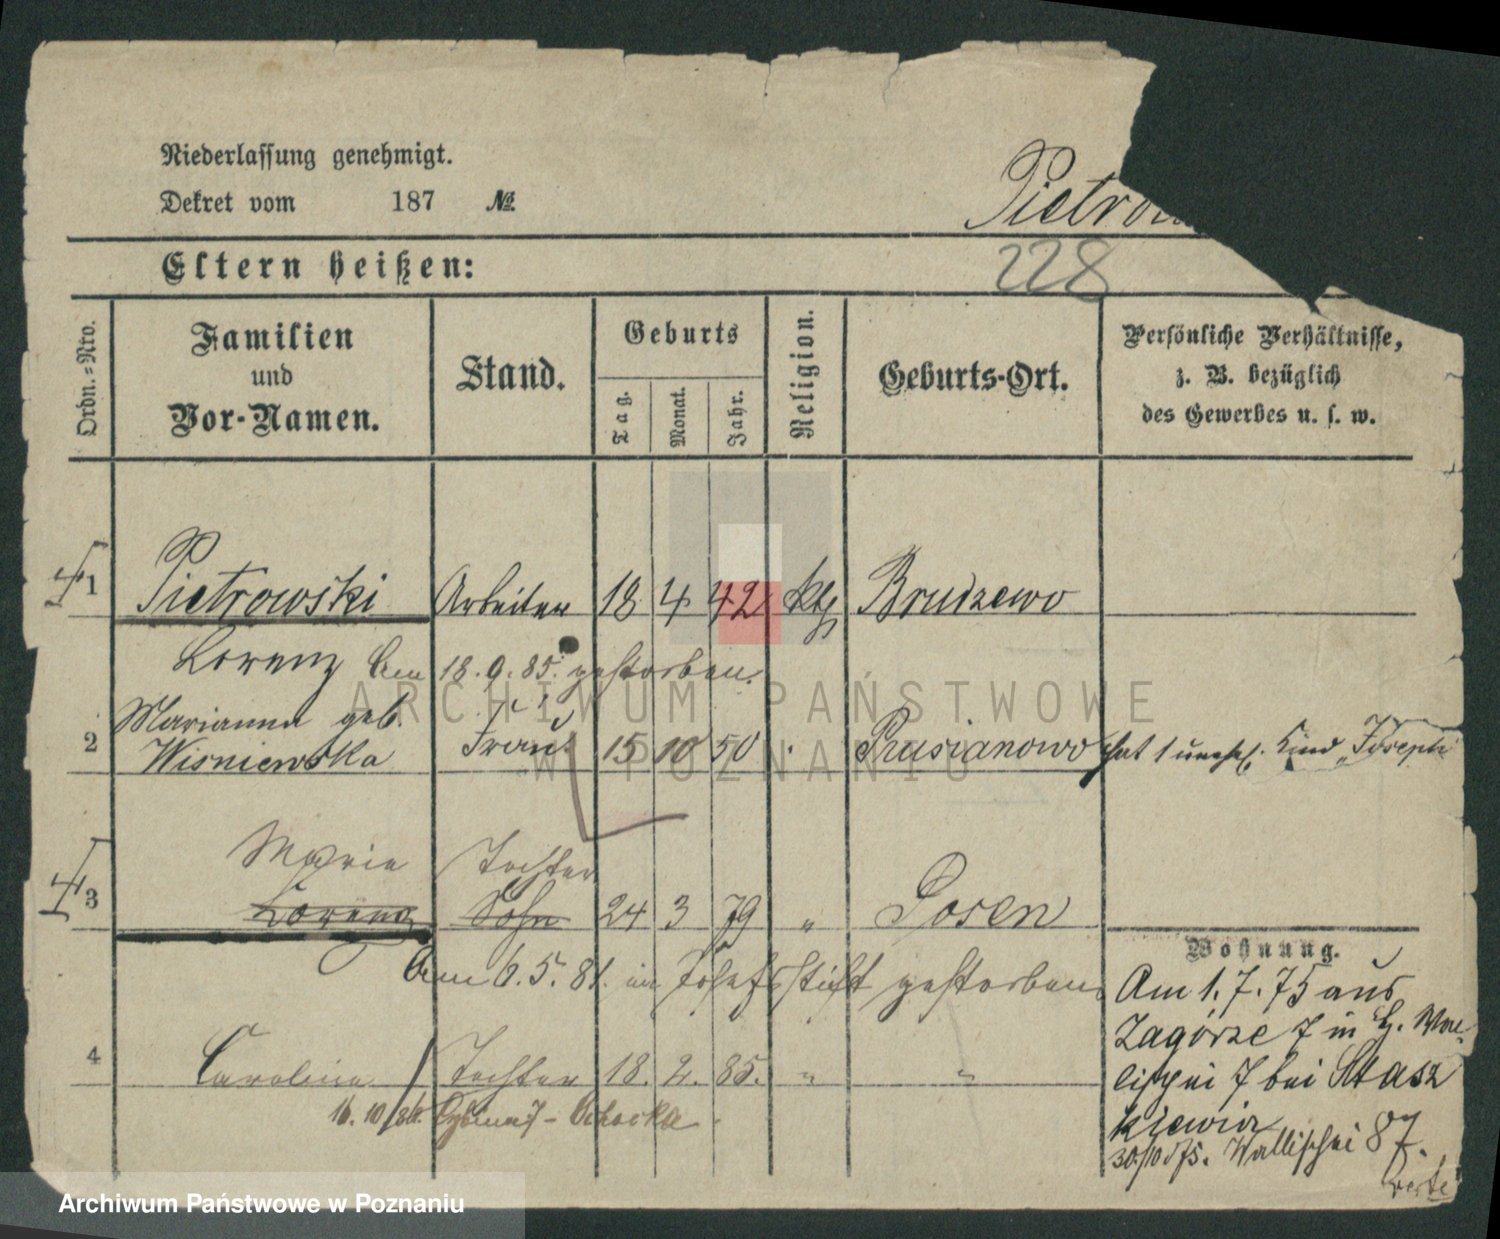 Niederlassung genehmigt.
Dekret vom 187 №
Pietrow
Eltern heißen:
228
Ordn.=Nro.
Familien
und
Vor-Namen.
Stand.
Geburts
Tag.
Monat.
Jahr.
Religion.
Geburts-Ort.
Persönliche Verhältnisse,
z. B. bezüglich
des Gewerbes u. s. w.
1 Pietrowski Arbeiter 18 4 42 kth Brudzewo
Lorenz Am 18.9.85. gestorben.
Marianna geb.
2 Wisniewska Frau 15 10 50 Prusianowo hat 1 unehl. Kind Joseph
Marie Tochter
3 Lorenz Sohn 24 3 79 " Posen
Am 6.5.81. im Josefsstift gestorben
4 Carolina Tochter 18. 2. 85. " "
16.10.86.
Wohnung.
Am 1.7.75 aus
Zagórze 7 in
lischei 7 bei Stasz
kiewicz
30/10 75. Wallischei 87.
verte
ARCHIWUM PAŃSTWOWE
W POZNANIU
Archiwum Państwowe w Poznaniu